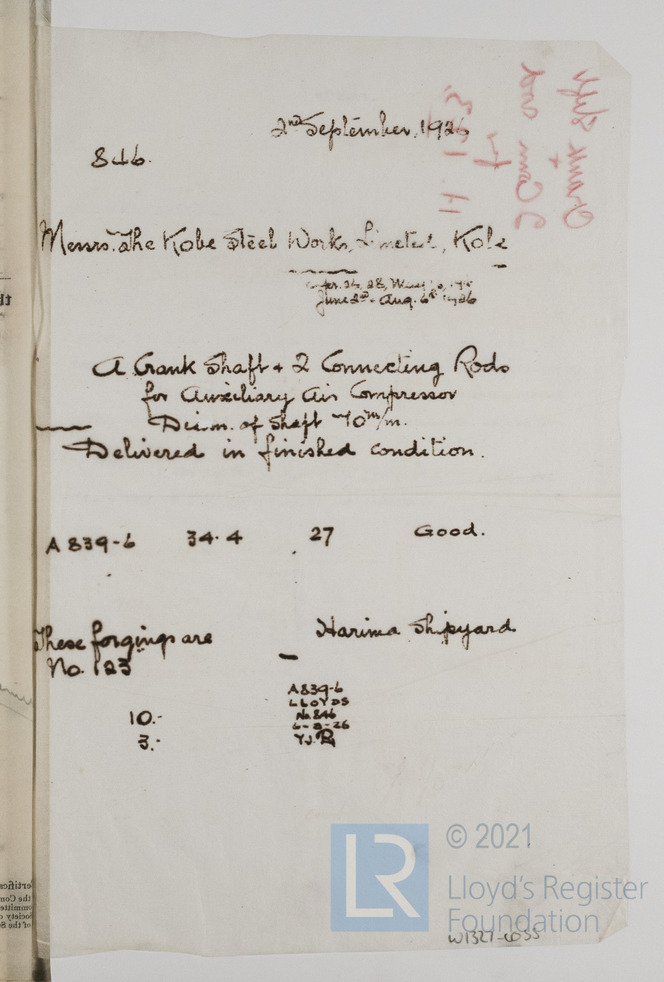 2nd September, 1926
846.
Messrs. The Kobe Steel Works, Limited, Kobe
June 2nd - Aug. 6th 1926
A Crank Shaft + 2 Connecting Rods
for Auxiliary Air Compressor
Diam. of Shaft 70 m/m.
Delivered in finished condition.
A 839-6 34.4 27 Good.
These forgings are Harima Shipyard
No. 123
A839-6
LLOYDS
No 846
10.- 6-8-26
3.- Y.J.R
LR
© 2021
Lloyd's Register
Foundation
W1327-0055